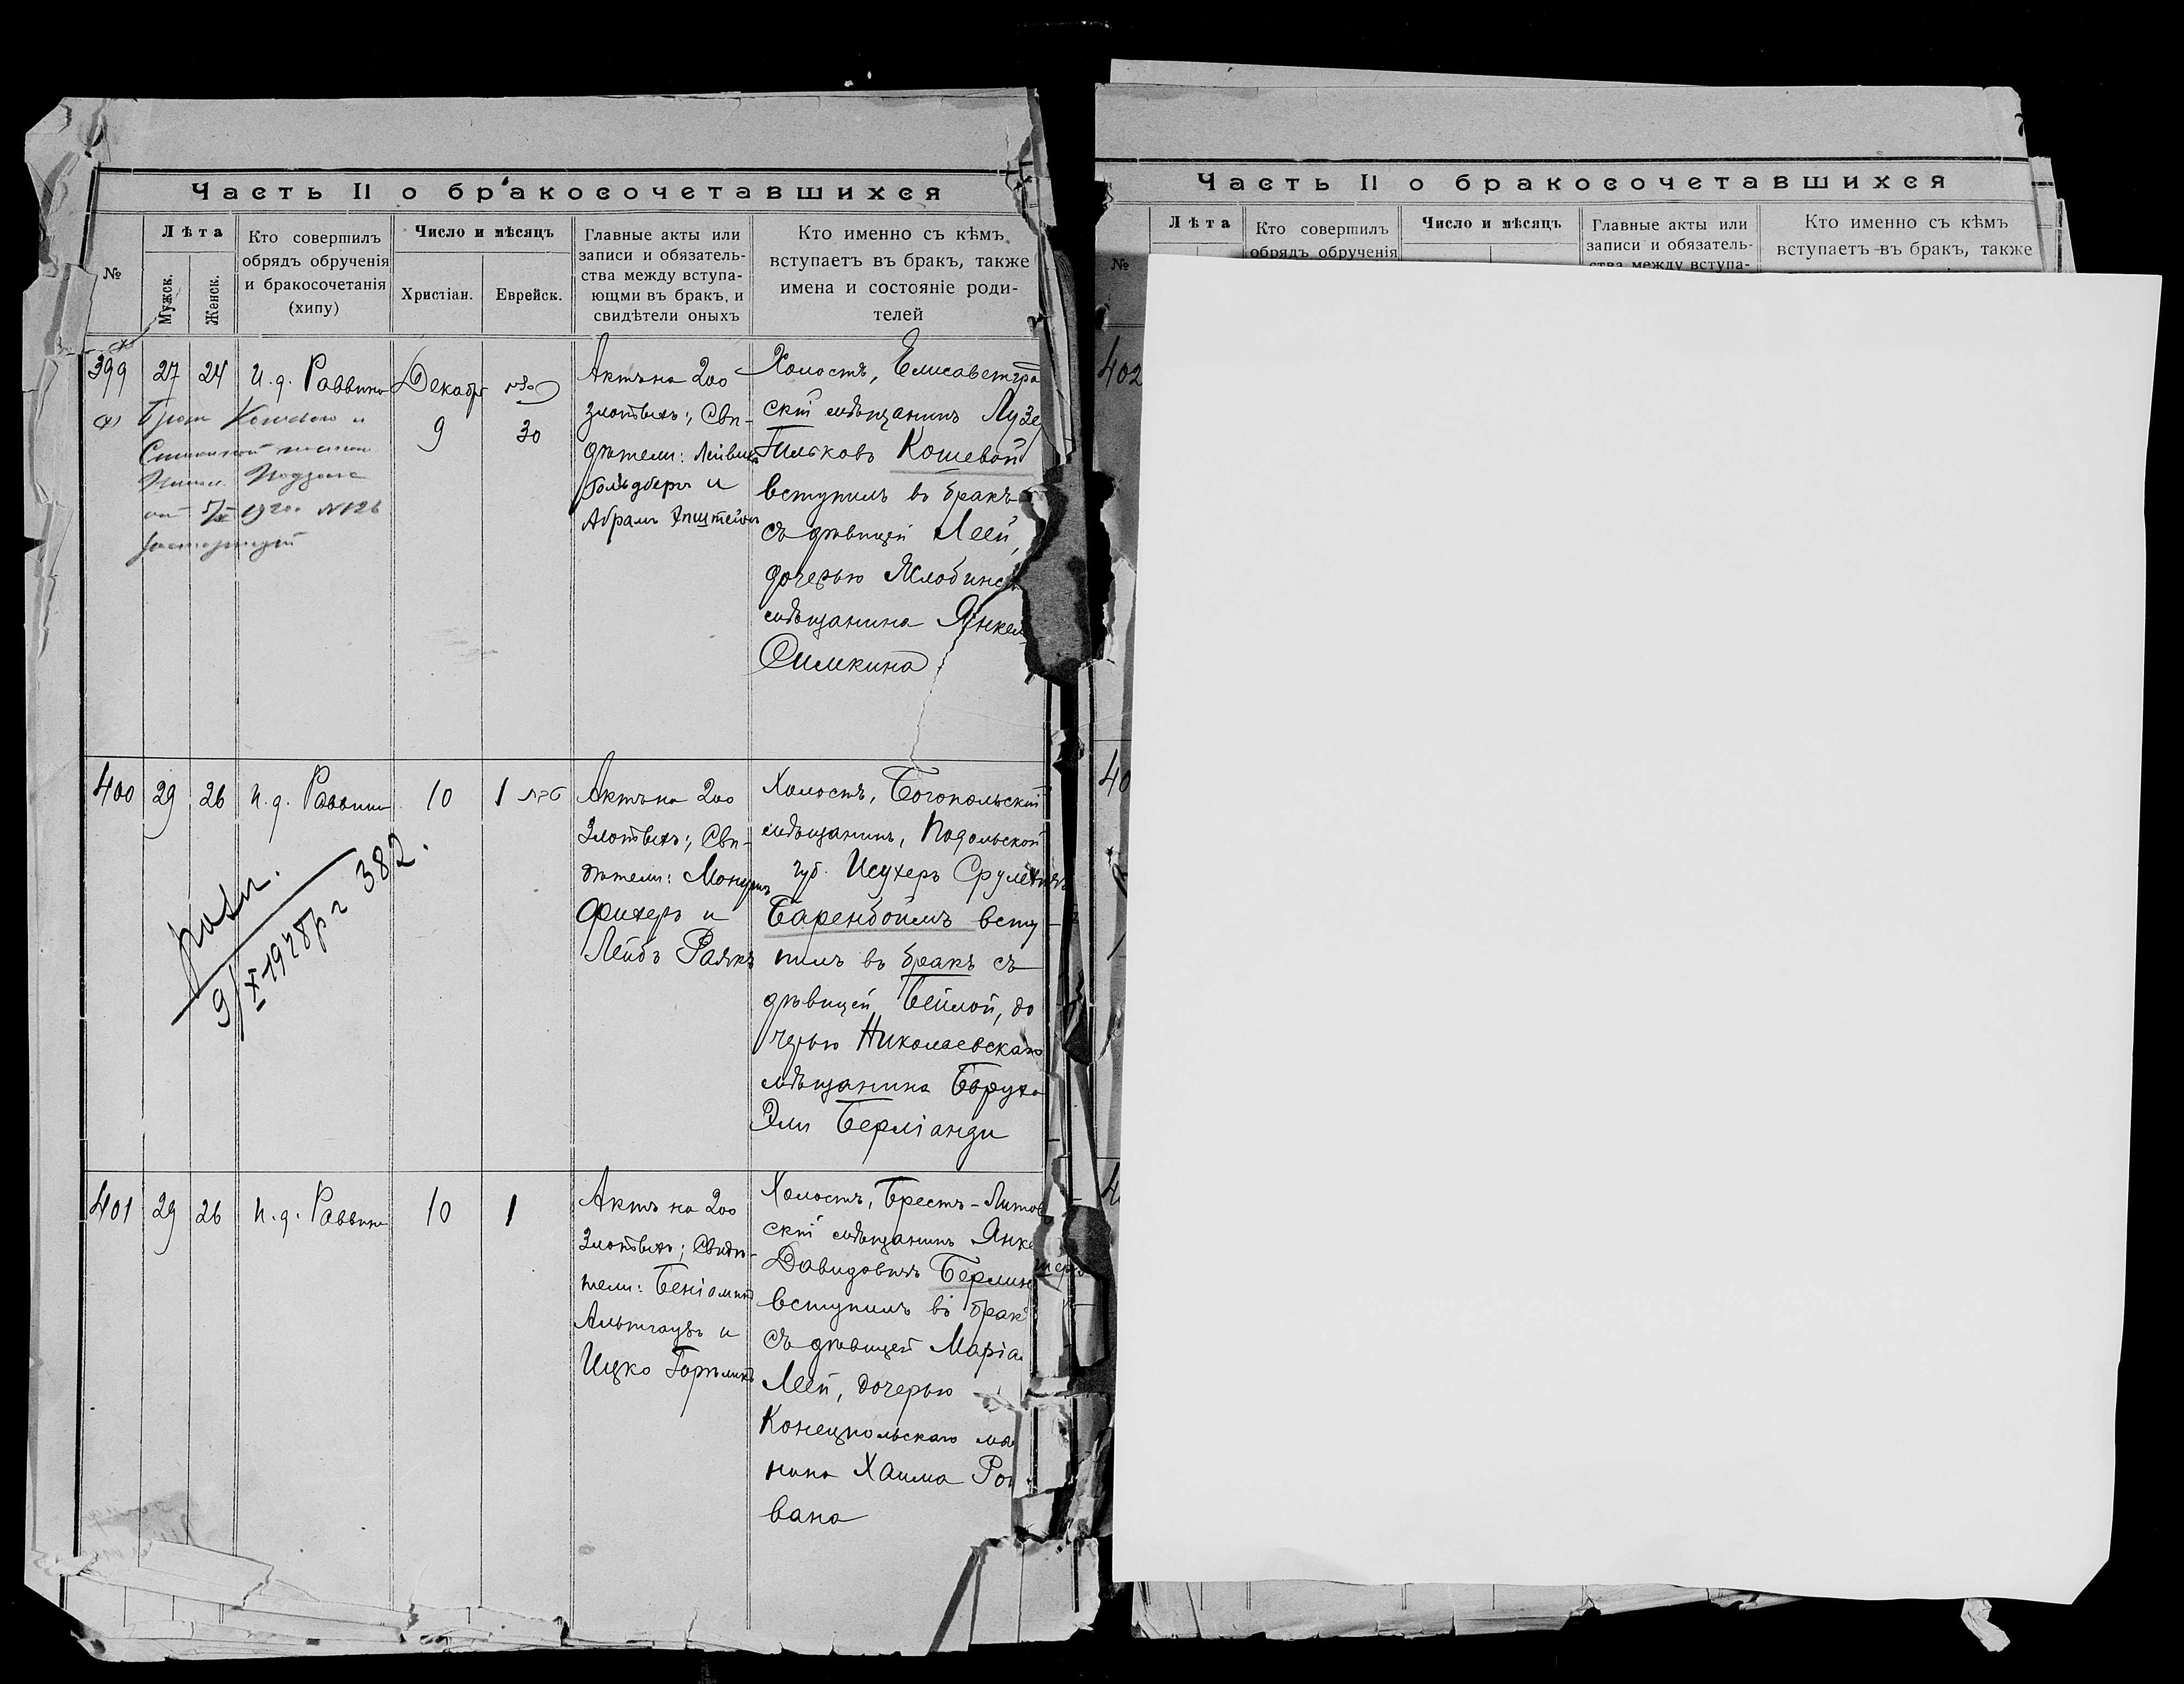 Часть II о бракосочетавшихся
№
Лѣта
Мужск.
Женск.
Кто совершилъ
обрядъ обрученія
и бракосочетанія
(хипу)
Число и мѣсяцъ
Христіан.
Еврейск.
Главные акты или
записи и обязатель-
ства между вступа-
ющми въ брак, и
свидѣтели оныхъ
Кто именно съ кѣмъ
вступаетъ въ брак, также
имена и состояніе роди-
телей
399
27
24
И. д. Раввина
Декабр
9
30
Актъ на 200
злотыхъ; Сви-
дѣтели:
Гольдберг и
Абрамъ Эпштейнъ
Холостъ, Елисаветгра
скій мѣщанинъ Лузе
Гильковъ Кошевой
вступилъ въ бракъ
съ дѣвицей Леей,
дочерью Жлобинск
мѣщанина Янкел
Симкина
400
29
26
И. д. Раввин
10
1
Актъ на 200
Злотыхъ; Сви-
дѣтели:
Фихеръ и
Лейбъ
Холостъ, Богопольскій
мѣщанинъ, Подольской
губ. Исухеръ Срулевичъ
Баренбоймъ всту
пилъ въ бракъ съ
дѣвицей Бейлой, до
черью Николаевскаго
мѣщанина Боруха
Эли Берліанди
382.
401
29
26
И. д. Раввин
10
1
Актъ на 200
Злотыхъ; Свидѣ-
тели: Беніоминъ
Альтгаузъ и
Ицко
Холостъ, Брестъ-Литов
скій мѣщанинъ Янке
Давидовичъ Берлин
вступилъ въ брак
съ дѣвицей Маріа
Леей, дочерью
Конецпольскаго мѣ
нина Хаима
вана
Часть II о бракосочетавшихся
№
Лѣта
Кто совершилъ
обрядъ обрученія
Число и мѣсяцъ
Главные акты или
записи и обязатель-
ства между вступа-
Кто именно съ кѣмъ
вступаетъ въ брак, также
402
40
4